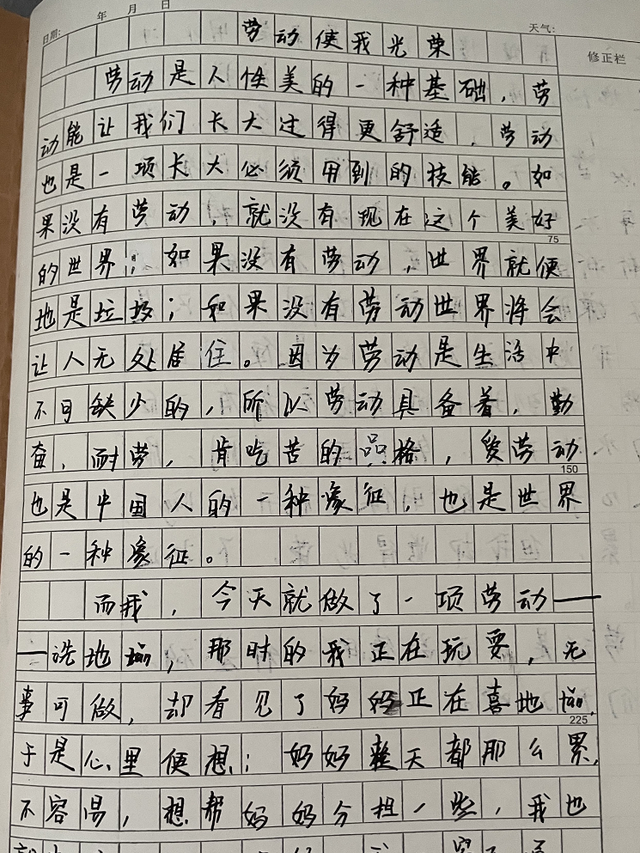 日期: 年 月 日 天气:
修正栏
劳动使我光荣
劳动是人性美的一种基础，劳
动能让我们长大过得更舒适，劳动
也是一项长大必须用到的技能。如
果没有劳动，就没有现在这个美好
75
的世界；如果没有劳动，世界就便
地是垃圾；如果没有劳动世界将会
让人无处居住。因为劳动是生活中
不可缺少的，所以劳动具备着，勤
奋，耐劳，肯吃苦的品格，爱劳动
150
也是中国人的一种象征，也是世界
的一种象征。
而我，今天就做了一项劳动—
—洗地，那时的我正在玩耍，无
事可做，却看见了妈妈正在喜地
225
于是心里便想：妈妈整天都那么累，
不容易，想帮妈妈分担一些，我也